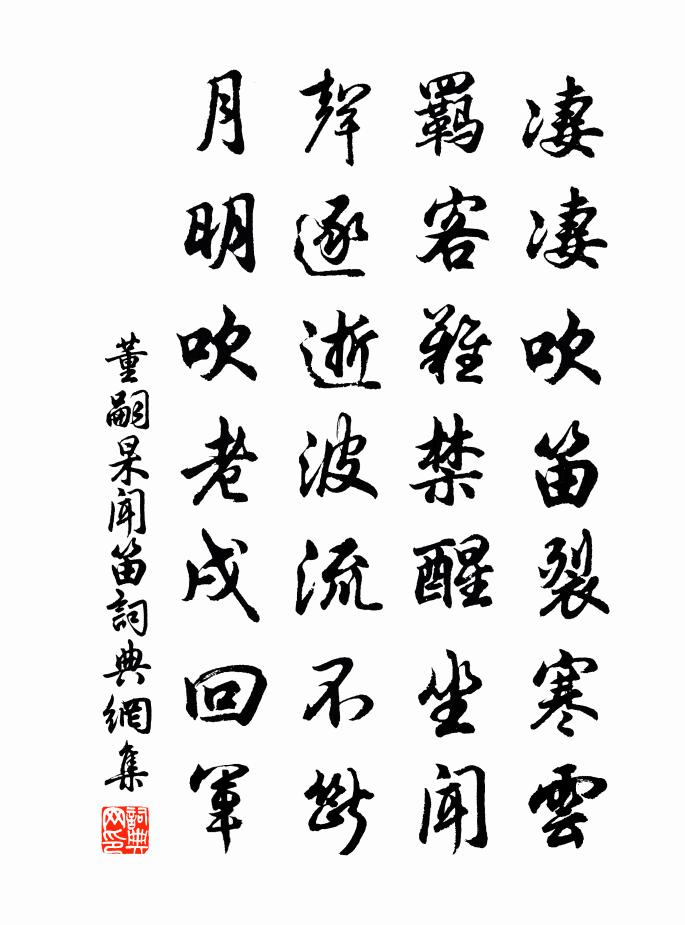 淒淒吹笛裂寒雲
羈客難禁醒坐聞
聲逐逝波流不斷
月明吹老戍回軍
董嗣杲聞笛詞典網集
詞典网印